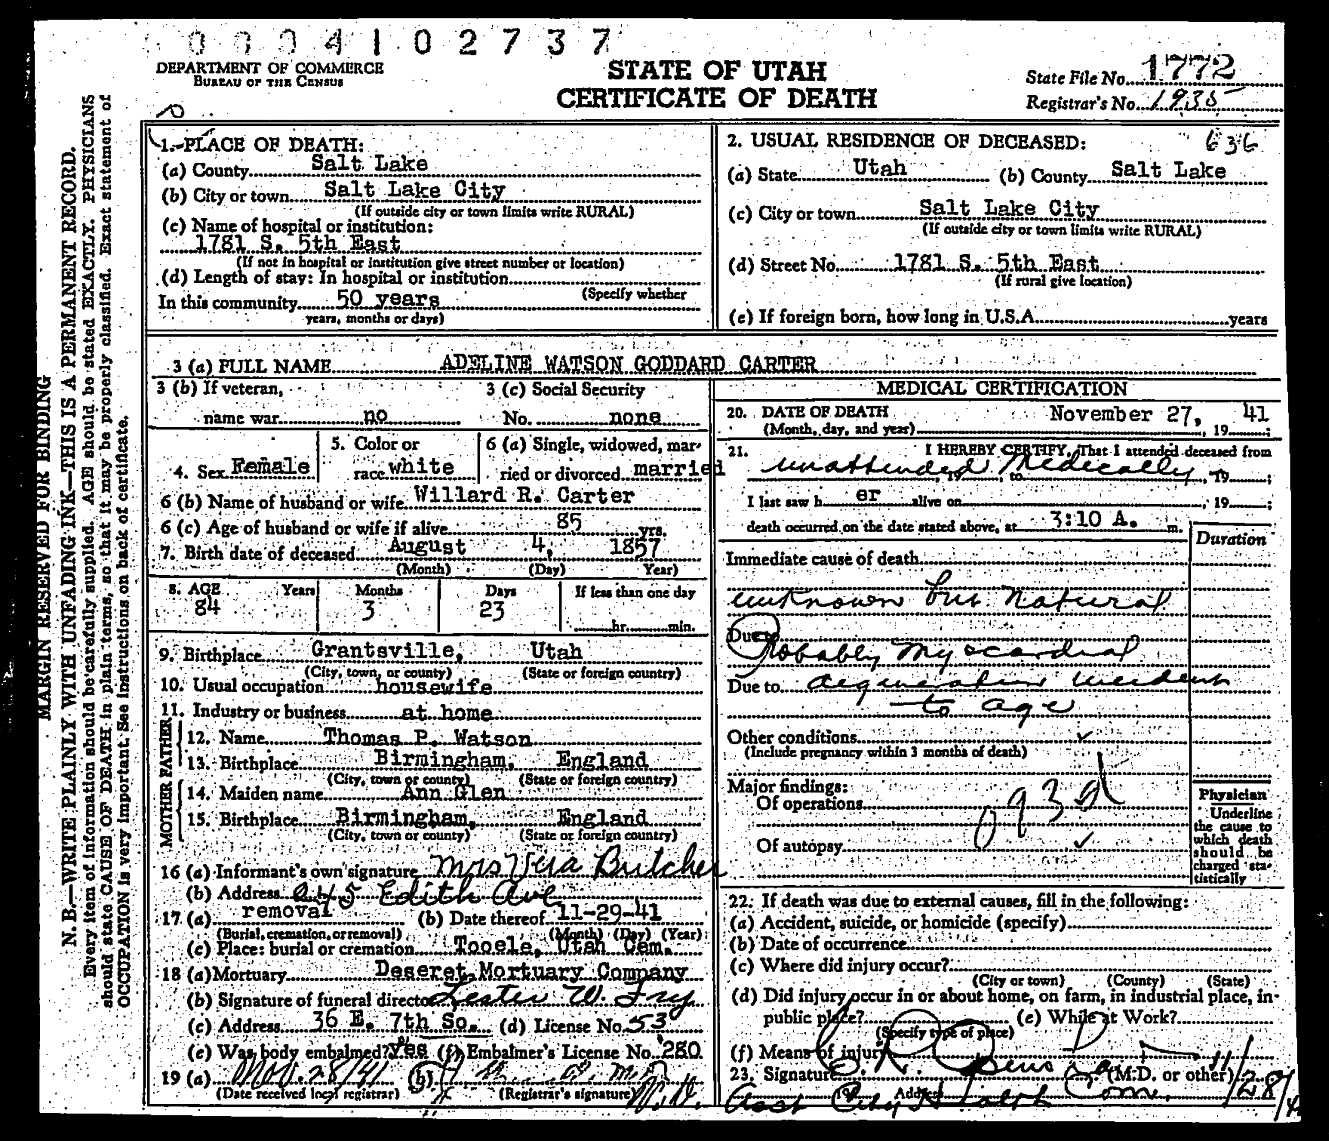 0004102737
DEPARTMENT OF COMMERCE
BUREAU OF THE CENSUS
STATE OF UTAH
CERTIFICATE OF DEATH
State File No. 1772
Registrar's No. 1935
MARGIN RESERVED FOR BINDING
N. B.—WRITE PLAINLY WITH UNFADING INK—THIS IS A PERMANENT RECORD.
Every item of information should be carefully supplied. AGE should be stated EXACTLY. PHYSICIANS
should state CAUSE OF DEATH in plain terms, so that it may be properly classified. Exact statement of
OCCUPATION is very important. See instructions on back of certificate.
1. PLACE OF DEATH:
(a) County Salt Lake
(b) City or town Salt Lake City
(If outside city or town limits write RURAL)
(c) Name of hospital or institution:
1781 S. 5th East
(If not in hospital or institution give street number or location)
(d) Length of stay: In hospital or institution
(Specify whether
In this community 50 years
years, months or days)
2. USUAL RESIDENCE OF DECEASED: 636
(a) State Utah (b) County Salt Lake
(c) City or town Salt Lake City
(If outside city or town limits write RURAL)
(d) Street No. 1781 S. 5th East
(If rural give location)
(e) If foreign born, how long in U.S.A. years
3 (a) FULL NAME ADELINE WATSON GODDARD CARTER
3 (b) If veteran,
name war no
3 (c) Social Security
No. none
4. Sex Female
5. Color or
race white
6 (a) Single, widowed, mar-
ried or divorced married
6 (b) Name of husband or wife Willard R. Carter
6 (c) Age of husband or wife if alive 85 yrs.
7. Birth date of deceased August 4, 1857
(Month) (Day) Year)
8. AGE Years Months Days If less than one day
84 3 23 hr. min.
9. Birthplace Grantsville, Utah
(City, town, or county) (State or foreign country)
10. Usual occupation housewife
11. Industry or business at home
FATHER
12. Name Thomas P. Watson
13. Birthplace Birmingham, England
(City, town or county) (State or foreign country)
MOTHER
14. Maiden name Ann Glen
15. Birthplace Birmingham, England
(City, town or county) (State or foreign country)
16 (a) Informant's own signature Mrs Vera Butcher
(b) Address 245 Edith Ave
17 (a) removal (b) Date thereof 11-29-41
(Burial, cremation, or removal) (Month) (Day) (Year)
(c) Place: burial or cremation Tooele, Utah Cem.
18 (a) Mortuary Deseret Mortuary Company
(b) Signature of funeral director Lester W. Fry
(c) Address 36 E. 7th So. (d) License No. 53
(e) Was body embalmed? Yes (f) Embalmer's License No. 280
19 (a) Nov. 28/41 (b) M.D.
(Date received local registrar) (Registrar's signature)
MEDICAL CERTIFICATION
20. DATE OF DEATH November 27, 1941
(Month, day, and year)
21. I HEREBY CERTIFY, That I attended deceased from
unattended Medically, 19 , to , 19 ;
I last saw h er alive on , 19 ;
death occurred on the date stated above, at 3:10 A. m.
Duration
Immediate cause of death
unknown but natural
Due to
Probably Myocardial
Due to degeneration incident
to age
Other conditions
(Include pregnancy within 3 months of death)
Major findings:
Of operations
093d
Of autopsy
Physician
Underline
the cause to
which death
should be
charged sta-
tistically
22. If death was due to external causes, fill in the following:
(a) Accident, suicide, or homicide (specify)
(b) Date of occurrence
(c) Where did injury occur?
(City or town) (County) (State)
(d) Did injury occur in or about home, on farm, in industrial place, in
public place? (e) While at Work?
(Specify type of place)
(f) Means of injury
23. Signature (M.D. or other) 11/28/4
Address Asst City Health Com.